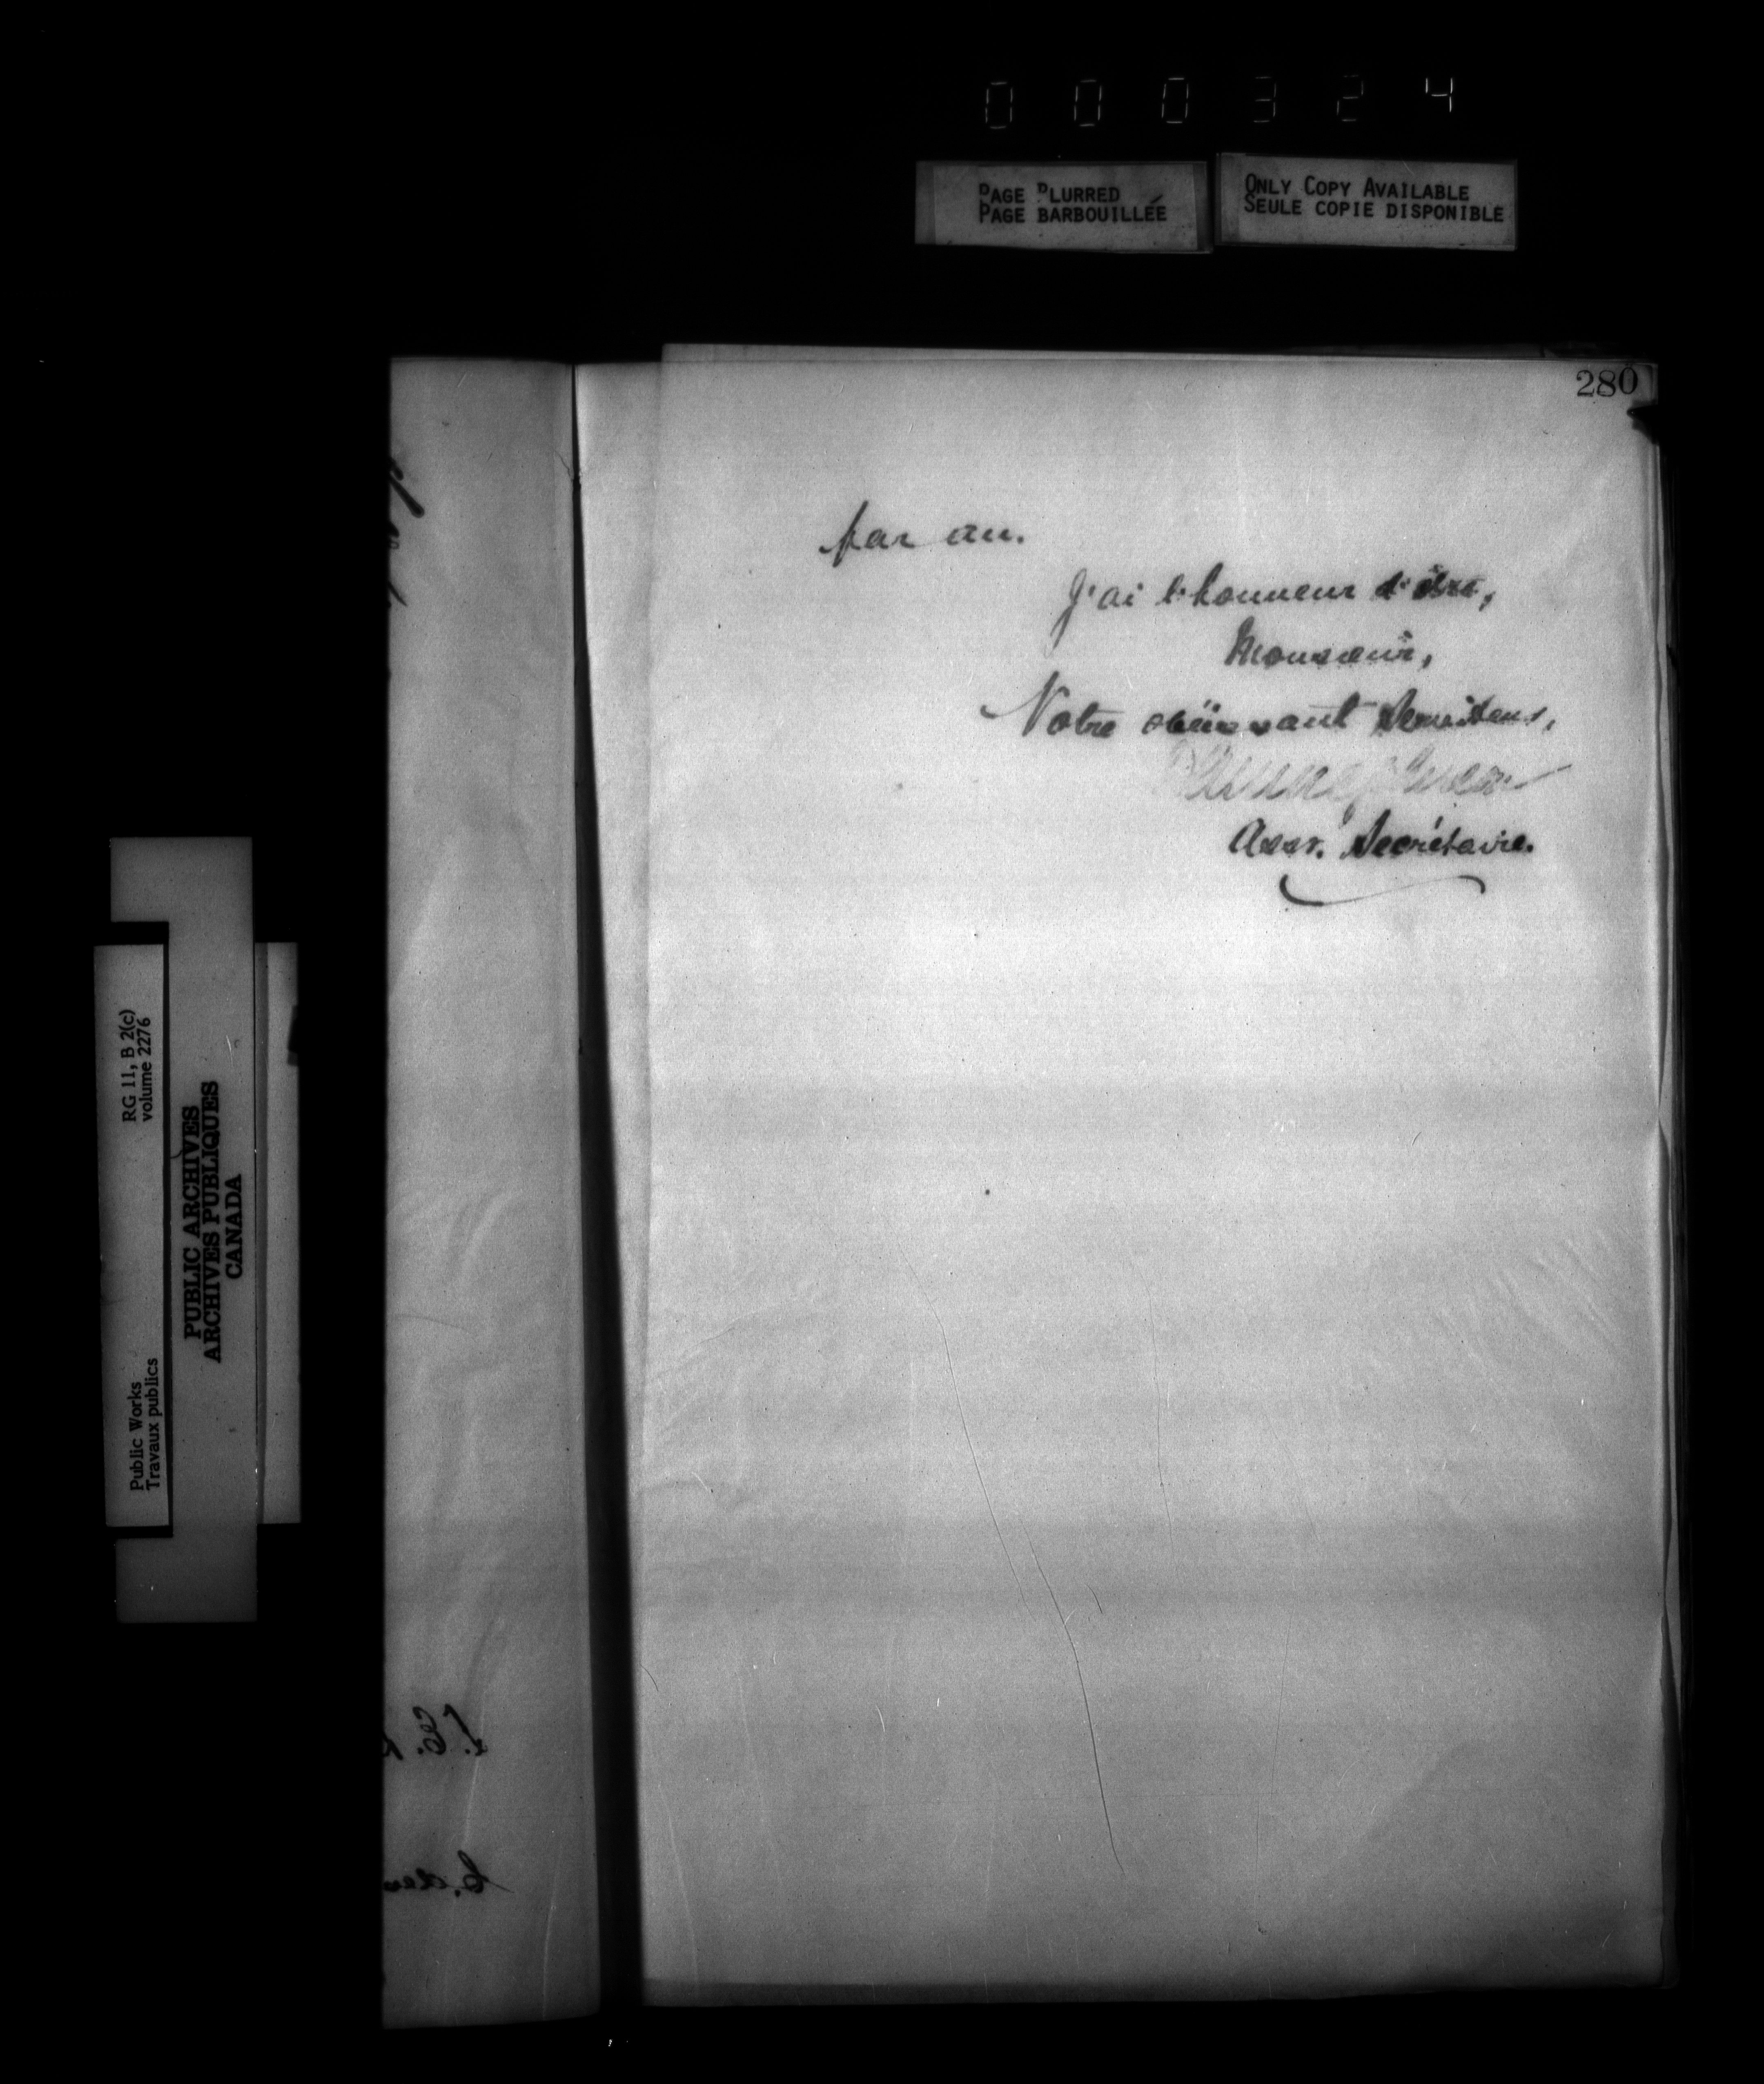 000324
PAGE BLURRED
PAGE BARBOUILLÉE
ONLY COPY AVAILABLE
SEULE COPIE DISPONIBLE
280
par an.
J'ai l'honneur d'être,
Monsieur,
Votre obéissant Serviteur,
Asst. Secrétaire.
RG 11, B 2(c)
volume 2276
Public Works
Travaux publics
PUBLIC ARCHIVES
ARCHIVES PUBLIQUES
CANADA